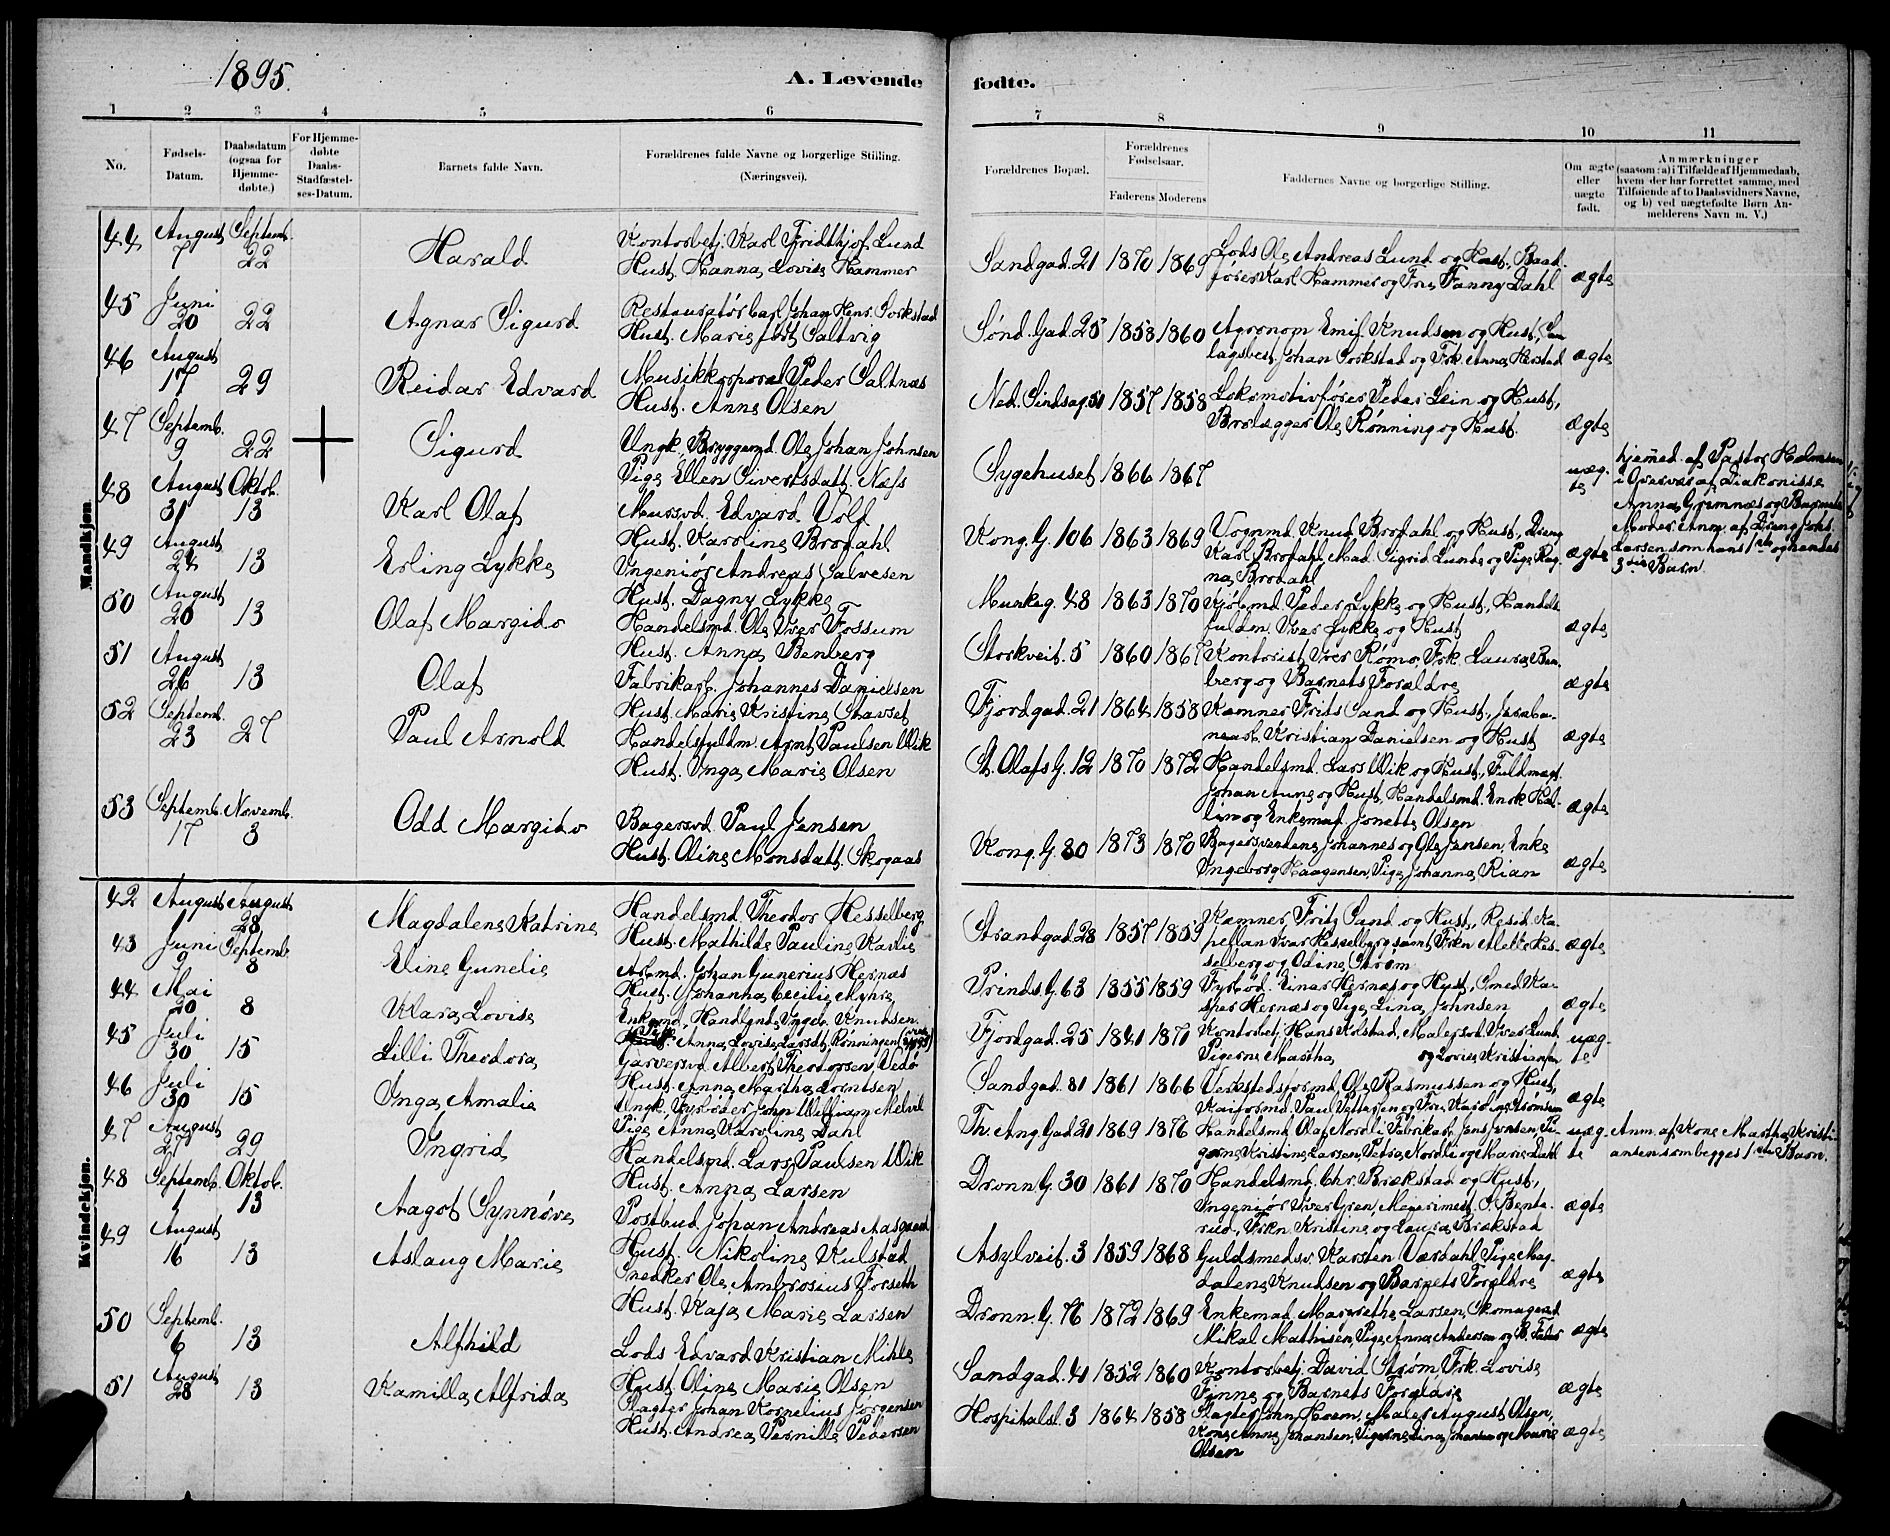 1895.
A. Levende fødte.
1 2 3 4 5 6 7 8 9 10 11
No.
Fødsels-
Datum.
Daabsdatum
(ogsaa for
Hjemme-
døbte.)
For Hjemme-
døbte
Daabs-
Stadfæstel-
ses-Datum.
Barnets fulde Navn.
Forældrenes fulde Navne og borgerlige Stilling.
(Næringsvei).
Forældrenes Bopæl.
Forældrenes
Fødselsaar.
Faderens Moderens
Faddernes Navne og borgerlige Stilling.
Om ægte
eller
uægte
født.
Anmærkninger
(saasom: a) i Tilfælde af Hjemmedaab,
hvem der har forrettet samme, med
Tilføiende af to Daabsvidners Navne,
og b) ved uægtefødte Børn An-
melderens Navn m. V.)
Mandkjøn
44 August 7 Septemb. 22
Harald
Kontorbetj. Karl Fridthjof Lund
Hust. Hanna Lovise Hammer
Sandgad. 21 1870 1869
Lods Ole Andreas Lund og Hust., Baad-
fører Karl Hammer og Frk. Fanny Dahl
ægte
45 Juni 20 22
Agnar Sigurd
Restauratør Carl Johan Henr. Sorkstad
Hust. Marie født Saltvig
Sønd. Gad. 25 1858 1860
Agronom Emil Knudsen og Hust.,
lagsbest. Johan Sorkstad og Frk. Anna
ægte
46 August 17 29
Reidar Edvard
Musikkorporal Peder Saltnæs
Hust. Anne Olsen
Ned. Sindsag. 51 1857 1858
Lokomotivfører Peder Lein og Hust,
Brolægger Ole Rønning og Hust.
ægte
47 Septemb. 9 22
Sigurd
Ungk. Bryggemd. Ole Johan Johnsen
Pige Ellen Sivertsdatt. Næss
Sygehuset 1866 1867
uæg-
te
hjemed. af Pastor Holmsen
i Overvær af Diakonisse
Anna Gremnæs og Barnets
Moder Anm. af Dreng Johs.
Larsen som hans 1ste og hendes
3die Barn.
48 August 31 Oktob. 13
Karl Olaf
Mursvd. Edvard Vold
Hust. Karoline Brodahl
Kong. G. 106 1863 1869
Vognmd. Knud Brodahl og Hust., Dreng
Karl Brodahl, Mad. Sigrid Lunde og Pige Rag-
na Brodahl
ægte
49 August 24 13
Erling Lykke
Ingeniør Andreas Salvesen
Hust. Dagny Lykke
Munkeg. 48 1863 1870
Kjøbmd. Peder Lykke og Hust., Handels-
fuldm. Iver Lykke og Hust
ægte
50 August 20 13
Olaf Margido
Handelsmd. Ole Iver Fossum
Hust. Anna Benberg
Storkveit. 5 1860 1867
Kontorist Iver Romo, Frk. Laura Ben-
berg og Barnets Forældre
ægte
51 August 26 13
Olaf
Fabrikarb. Johannes Danielsen
Hust. Marie Kristine Stavset
Fjordgad. 21 1864 1858
Kæmner Frits Sand og Hust., Jernba-
nearb. Kristian Danielsen og Hust
ægte
52 Septemb. 23 27
Paul Arnold
Handelsfuldm. Arnt Paulsen Wik
Hust. Inga Marie Olsen
St. Olafs G. 12 1870 1872
Handelsmd. Lars Wik og Hust., Fuldmægt.
Johan Aune og Hust, Handelsmd. Enok Hal-
lim og Enkemad. Jonette Olsen
ægte
53 Septemb. 17 Novemb. 3
Odd Margido
Bagersvd. Paul Jensen
Hust. Oline Monsdatt. Skogaas
Kong. G. 80 1873 1870
Bagersvendene Johannes og Ole Jensen, Enke
Ingeborg Haagensen, Pige Johanna Rian
ægte
Kvindekjøn.
42 August 1 August 28
Magdalene Katrine
Handelsmd. Theodor Hesselberg
Hust. Mathilde Pauline Karlie
Strandgad. 28 1857 1859
Kæmner Fritz Sand og Hust., Resid. Ka-
pellan Ivar Hesselberg samt Frkn Alette Hes-
selberg og Odine Strøm
ægte
43 Juni 9 Septemb. 8
Eline Gunelie
Arbmd. Johan Gunerius Hernæs
Hust. Johanna Cecilie Myhre
Prinds. G. 63 1855 1859
Fyrbød. Einar Hernæs og Hust, Smed Ka-
sper Hernæs og Pige Lina Johnsen
ægte
44 Mai 20 8
Klara Lovise
Enkemd., Handlgad. Ingbr. Knudsen
Pige Anna Lovise Larsdt. Rønningen
Fjordgad. 25 1841 1871
Kontorbetj. Hans Kolstad, Malersvd. Iver Lund,
Pigerne Martha og Lovise Kristiansen
uæg-
te
45 Juli 30 15
Lilli Theodora
Garversvd. Albert Theodorsen Vedø
Hust. Anna Martha Lorntsen
Sandgad. 81 1861 1866
Verkstedsformd. Ole Rasmussen og Hust,
Kaiformd. Paul Pettersen og Fru Karoline Strømsem
ægte
46 Juli 30 15
Inga Amalie
Ungk. Fyrbøder John William Melvil
Pige Anna Karoline Dahl
Th. Ang. Gad. 21 1869 1876
Handelsmd. Olaf Nordli, Fabrikarb. Jens Jensen, Pi-
gerne Kristine Larsen, Petra Nordli og Marie Dahl
uæg-
te
Anm. af Kone Martha Kristi-
ansen som begges 1ste Barn.
47 August 27 29
Ingrid
Handelsmd. Lars Paulsen Wik
Hust. Anna Larsen
Dronn. G. 30 1861 1870
Handelsmd. Chr. Brækstad og Hust,
Ingeniør Iver Gren, Meierimest. S. Bente-
rud, Frkn Kristine og Laura Brækstad
ægte
48 Septemb. 1 Oktob. 13
Aagot Synnøve
Postbud Johan Andreas Aasgaard
Hust. Nikoline Kulstad
Asylveit. 3 1859 1868
Guldsmedsv. Karsten Værdahl, Pige Mag-
dalene Knudsen og Barnets Forældre
ægte
49 August 16 13
Aslaug Marie
Snedker Ole Ambrosius Forseth
Hust. Kaja Marie Larsen
Dronn. G. 76 1872 1869
Enkemad. Margrethe Larsen, Skomagerd.
Mikal Mathisen, Pige Anna Andersen og B. Fader
ægte
50 Septemb. 6 13
Alfhild
Lods Edvard Kristian Mihle
Hust Oline Marie Olsen
Sandgad. 41 1852 1860
Kontorbetj. David Strøm, Frk. Lovise
Finne og Barnets Forældre
ægte
51 August 28 13
Kamilla Alfrida
Slagter Johan Kornelius Jørgensen
Hust. Andrea Pernille Pedersen
Hospitalsl. 3 1864 1858
Slagter John Hoem, Maler August Olsen,
Kone Anne Johansen, Pigerne Lina Johansen og Marie
Olsen
ægte